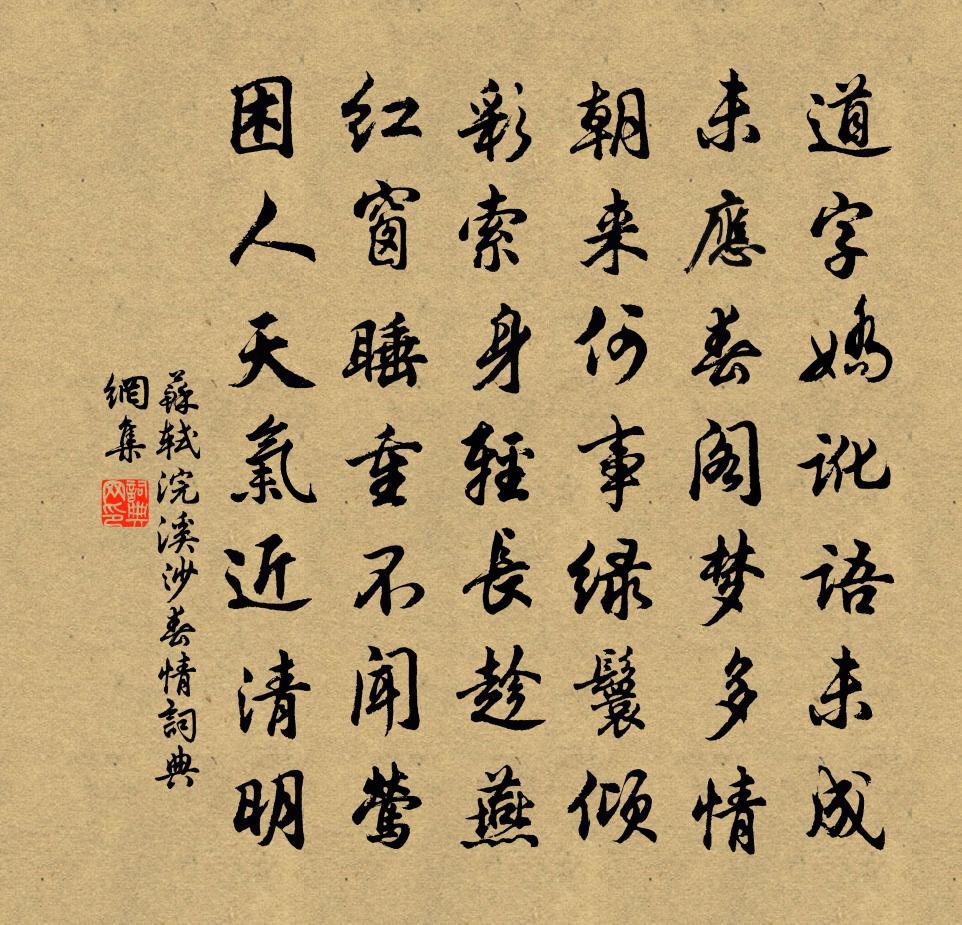 道字嬌訛語未成
未應春閣梦多情
朝来何事绿鬟倾
彩索身輕長趁燕
红窗睡重不聞鶯
困人天氣近清明
蘇軾浣溪沙春情詞典
網集
詞典网印